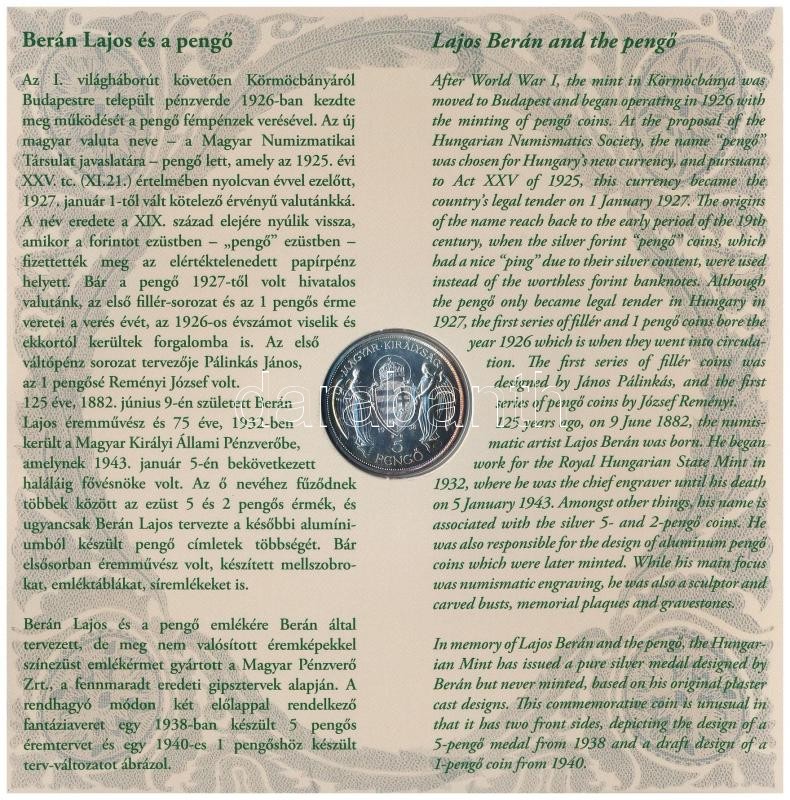 Berán Lajos és a pengő
Az I. világháborút követően Körmöcbányáról
Budapestre települt pénzverde 1926-ban kezdte
meg működését a pengő fémpénzek verésével. Az új
magyar valuta neve – a Magyar Numizmatikai
Társulat javaslatára – pengő lett, amely az 1925. évi
XXV. tc. (XI.21.) értelmében nyolcvan évvel ezelőtt,
1927. január 1-től vált kötelező érvényű valutánkká.
A név eredete a XIX. század elejére nyúlik vissza,
amikor a forintot ezüstben – „pengő” ezüstben –
fizettették meg az elértéktelenedett papírpénz
helyett. Bár a pengő 1927-től volt hivatalos
valutánk, az első fillér-sorozat és az 1 pengős érme
veretei a verés évét, az 1926-os évszámot viselik és
ekkortól kerültek forgalomba is. Az első
váltópénz sorozat tervezője Pálinkás János,
az 1 pengősé Reményi József volt.
125 éve, 1882. június 9-én született Berán
Lajos éremművész és 75 éve, 1932-ben
került a Magyar Királyi Állami Pénzverőbe,
amelynek 1943. január 5-én bekövetkezett
haláláig fővésnöke volt. Az ő nevéhez fűződnek
többek között az ezüst 5 és 2 pengős érmék, és
ugyancsak Berán Lajos tervezte a későbbi alumíni-
umból készült pengő címletek többségét. Bár
elsősorban éremművész volt, készített mellszobro-
kat, emléktáblákat, síremlékeket is.
Berán Lajos és a pengő emlékére Berán által
tervezett, de meg nem valósított éremképekkel
színezüst emlékérmet gyártott a Magyar Pénzverő
Zrt., a fennmaradt eredeti gipsztervek alapján. A
rendhagyó módon két előlappal rendelkező
fantáziaveret egy 1938-ban készült 5 pengős
éremtervet és egy 1940-es 1 pengőshöz készült
terv-változatot ábrázol.
MAGYAR·KIRÁLYSÁG
5
PENGŐ
darabanth
Lajos Berán and the pengő
After World War I, the mint in Körmöcbánya was
moved to Budapest and began operating in 1926 with
the minting of pengő coins. At the proposal of the
Hungarian Numismatics Society, the name “pengő”
was chosen for Hungary's new currency, and pursuant
to Act XXV of 1925, this currency became the
country's legal tender on 1 January 1927. The origins
of the name reach back to the early period of the 19th
century, when the silver forint “pengő” coins, which
had a nice “ping” due to their silver content, were used
instead of the worthless forint banknotes. Although
the pengő only became legal tender in Hungary in
1927, the first series of fillér and 1 pengő coins bore the
year 1926 which is when they went into circula-
tion. The first series of fillér coins was
designed by János Pálinkás, and the first
series of pengő coins by József Reményi.
125 years ago, on 9 June 1882, the numis-
matic artist Lajos Berán was born. He began
work for the Royal Hungarian State Mint in
1932, where he was the chief engraver until his death
on 5 January 1943. Amongst other things, his name is
associated with the silver 5- and 2-pengő coins. He
was also responsible for the design of aluminum pengő
coins which were later minted. While his main focus
was numismatic engraving, he was also a sculptor and
carved busts, memorial plaques and gravestones.
In memory of Lajos Berán and the pengő, the Hungar-
ian Mint has issued a pure silver medal designed by
Berán but never minted, based on his original plaster
cast designs. This commemorative coin is unusual in
that it has two front sides, depicting the design of a
5-pengő medal from 1938 and a draft design of a
1-pengő coin from 1940.